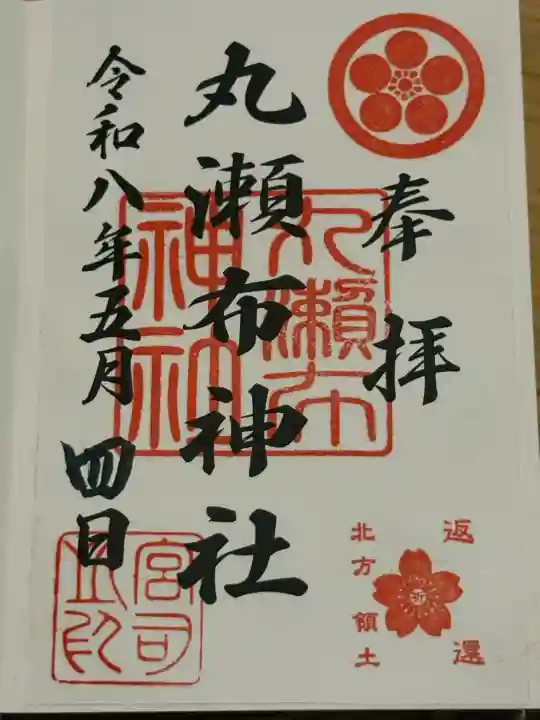 奉拝
丸瀬布神社
令和八年五月四日
丸瀬布
神社
宮司
之印
祈
返還
北方領土